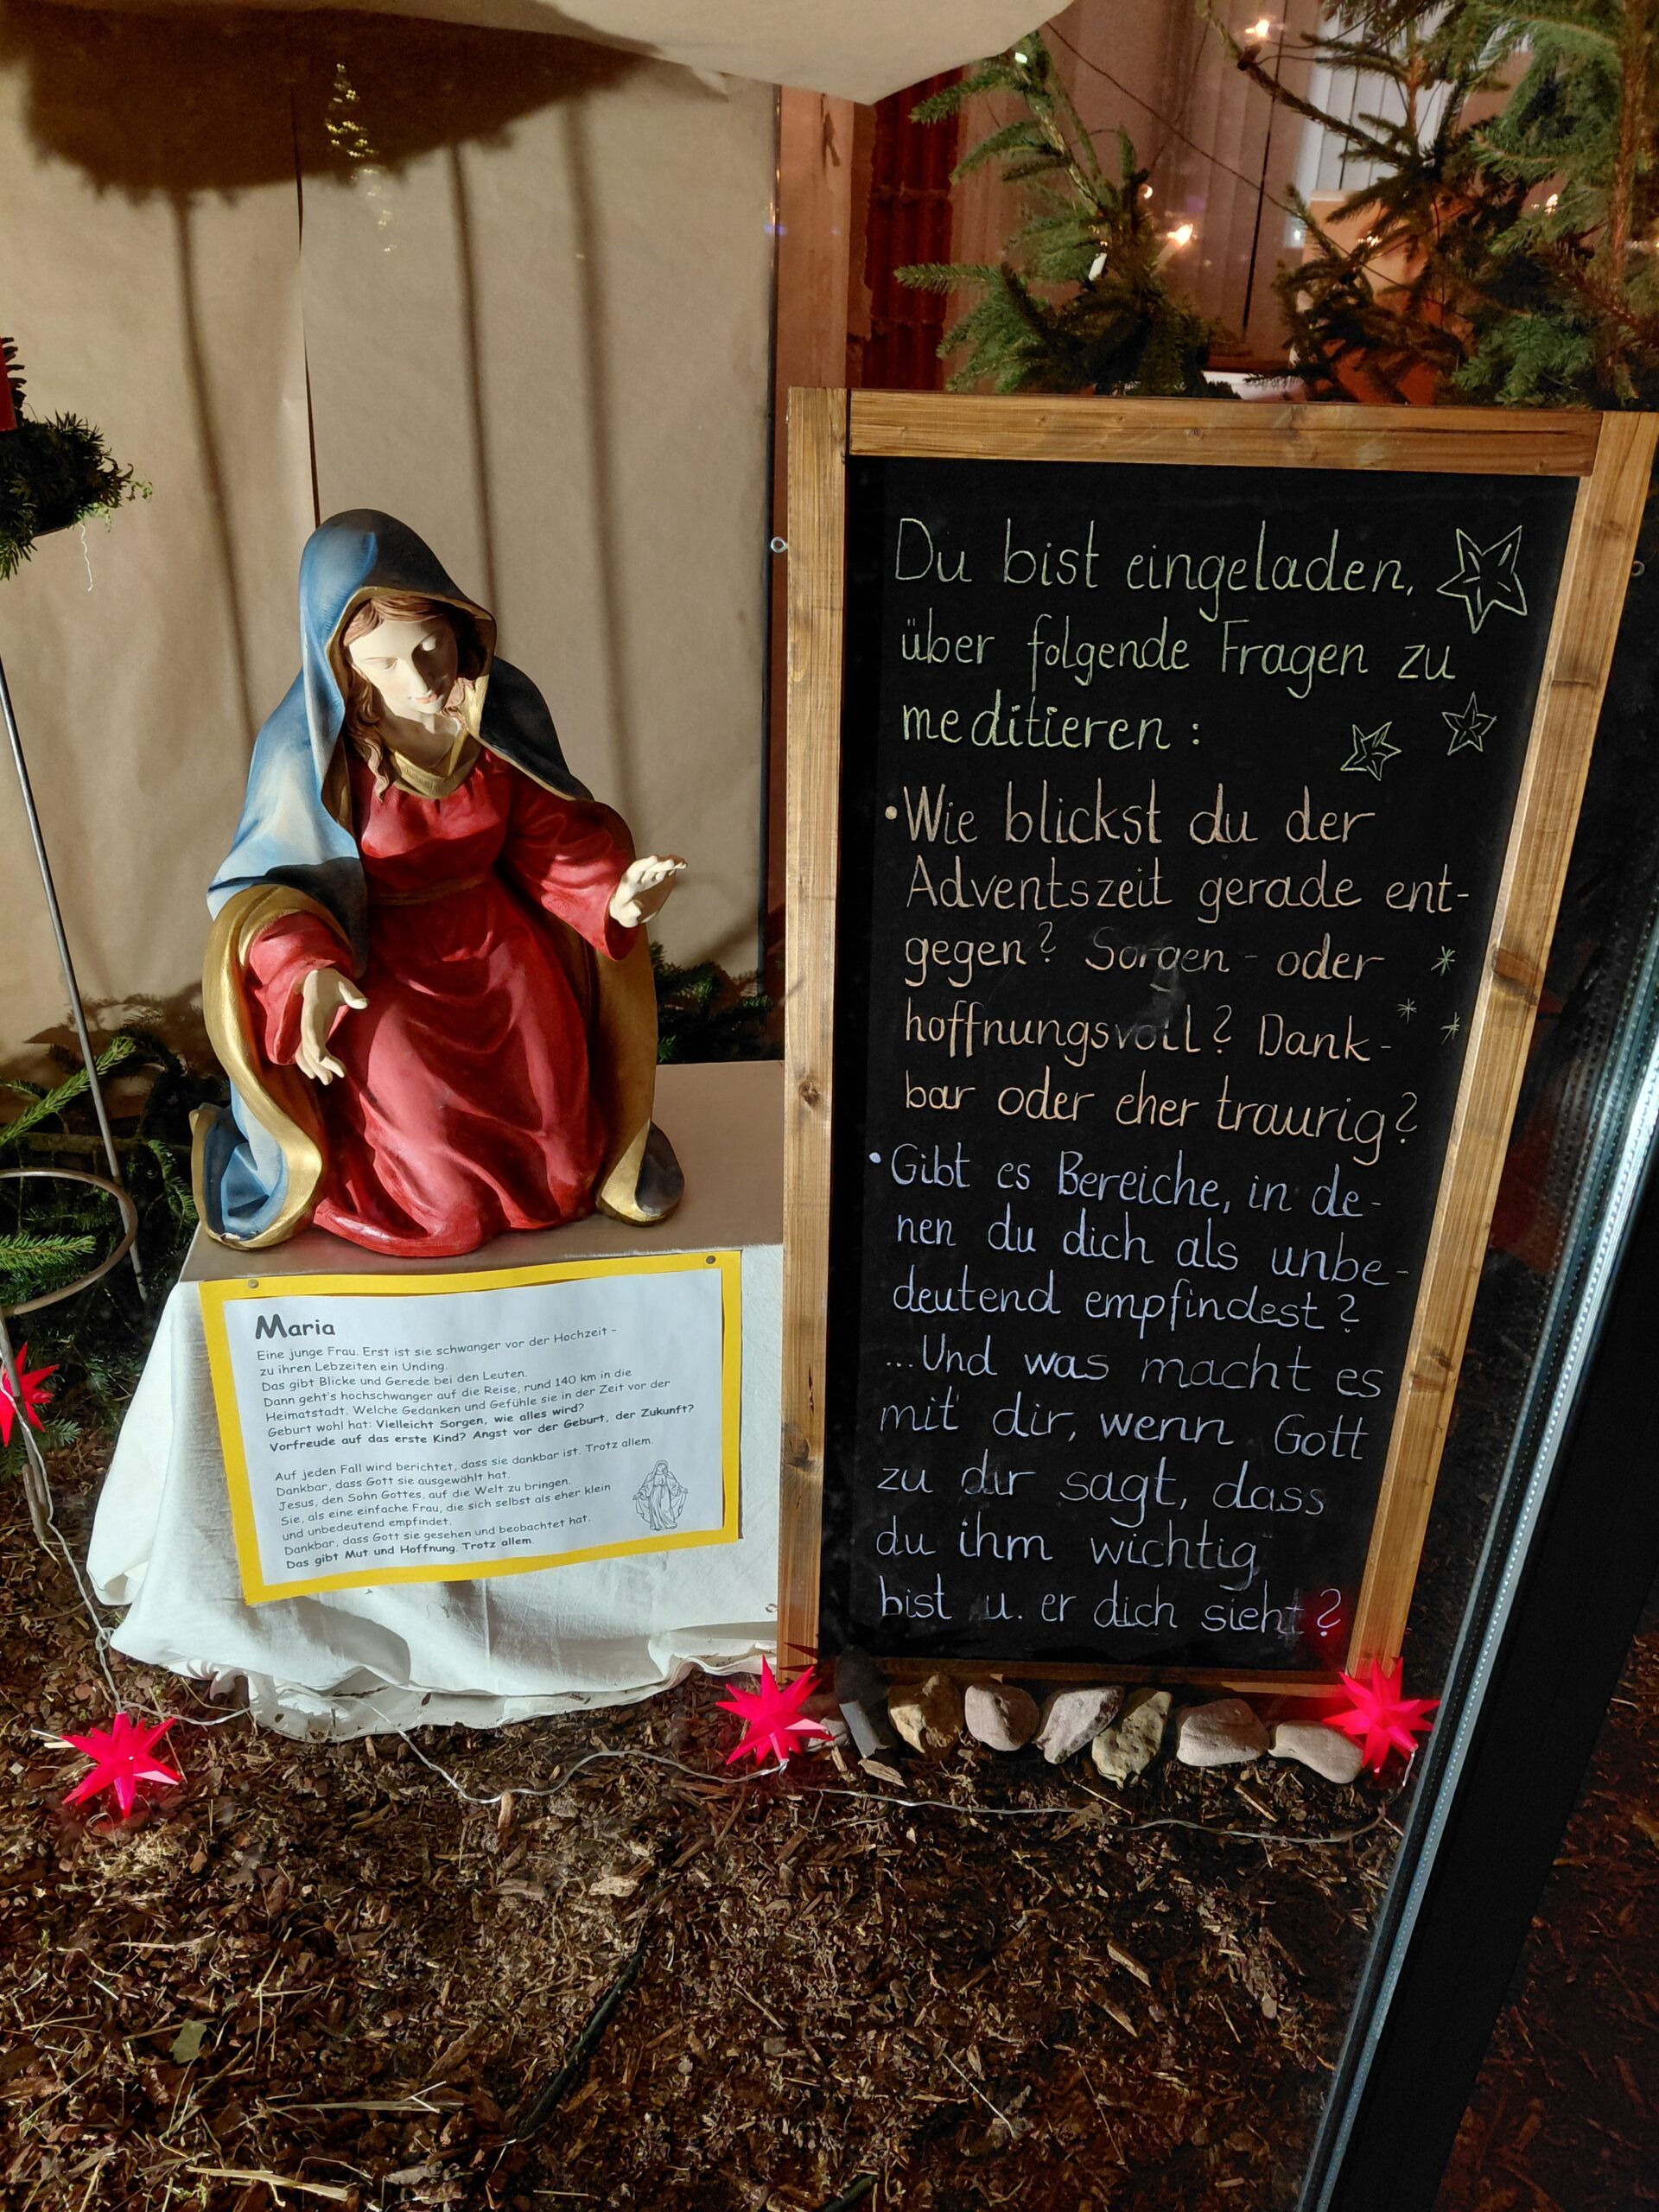 Maria
Eine junge Frau. Erst ist sie schwanger vor der Hochzeit -
zu ihren Lebzeiten ein Unding.
Das gibt Blicke und Gerede bei den Leuten.
Dann geht's hochschwanger auf die Reise, rund 140 km in die
Heimatstadt. Welche Gedanken und Gefühle sie in der Zeit vor der
Geburt wohl hat: Vielleicht Sorgen, wie alles wird?
Vorfreude auf das erste Kind? Angst vor der Geburt, der Zukunft?
Auf jeden Fall wird berichtet, dass sie dankbar ist. Trotz allem.
Dankbar, dass Gott sie ausgewählt hat.
Jesus, den Sohn Gottes, auf die Welt zu bringen.
Sie, als eine einfache Frau, die sich selbst als eher klein
und unbedeutend empfindet.
Dankbar, dass Gott sie gesehen und beobachtet hat.
Das gibt Mut und Hoffnung. Trotz allem.
Du bist eingeladen,
über folgende Fragen zu
meditieren:
• Wie blickst du der
Adventszeit gerade ent-
gegen? Sorgen- oder
hoffnungsvoll? Dank-
bar oder eher traurig?
• Gibt es Bereiche, in de-
nen du dich als unbe-
deutend empfindest?
...Und was macht es
mit dir, wenn Gott
zu dir sagt, dass
du ihm wichtig
bist u. er dich sieht?